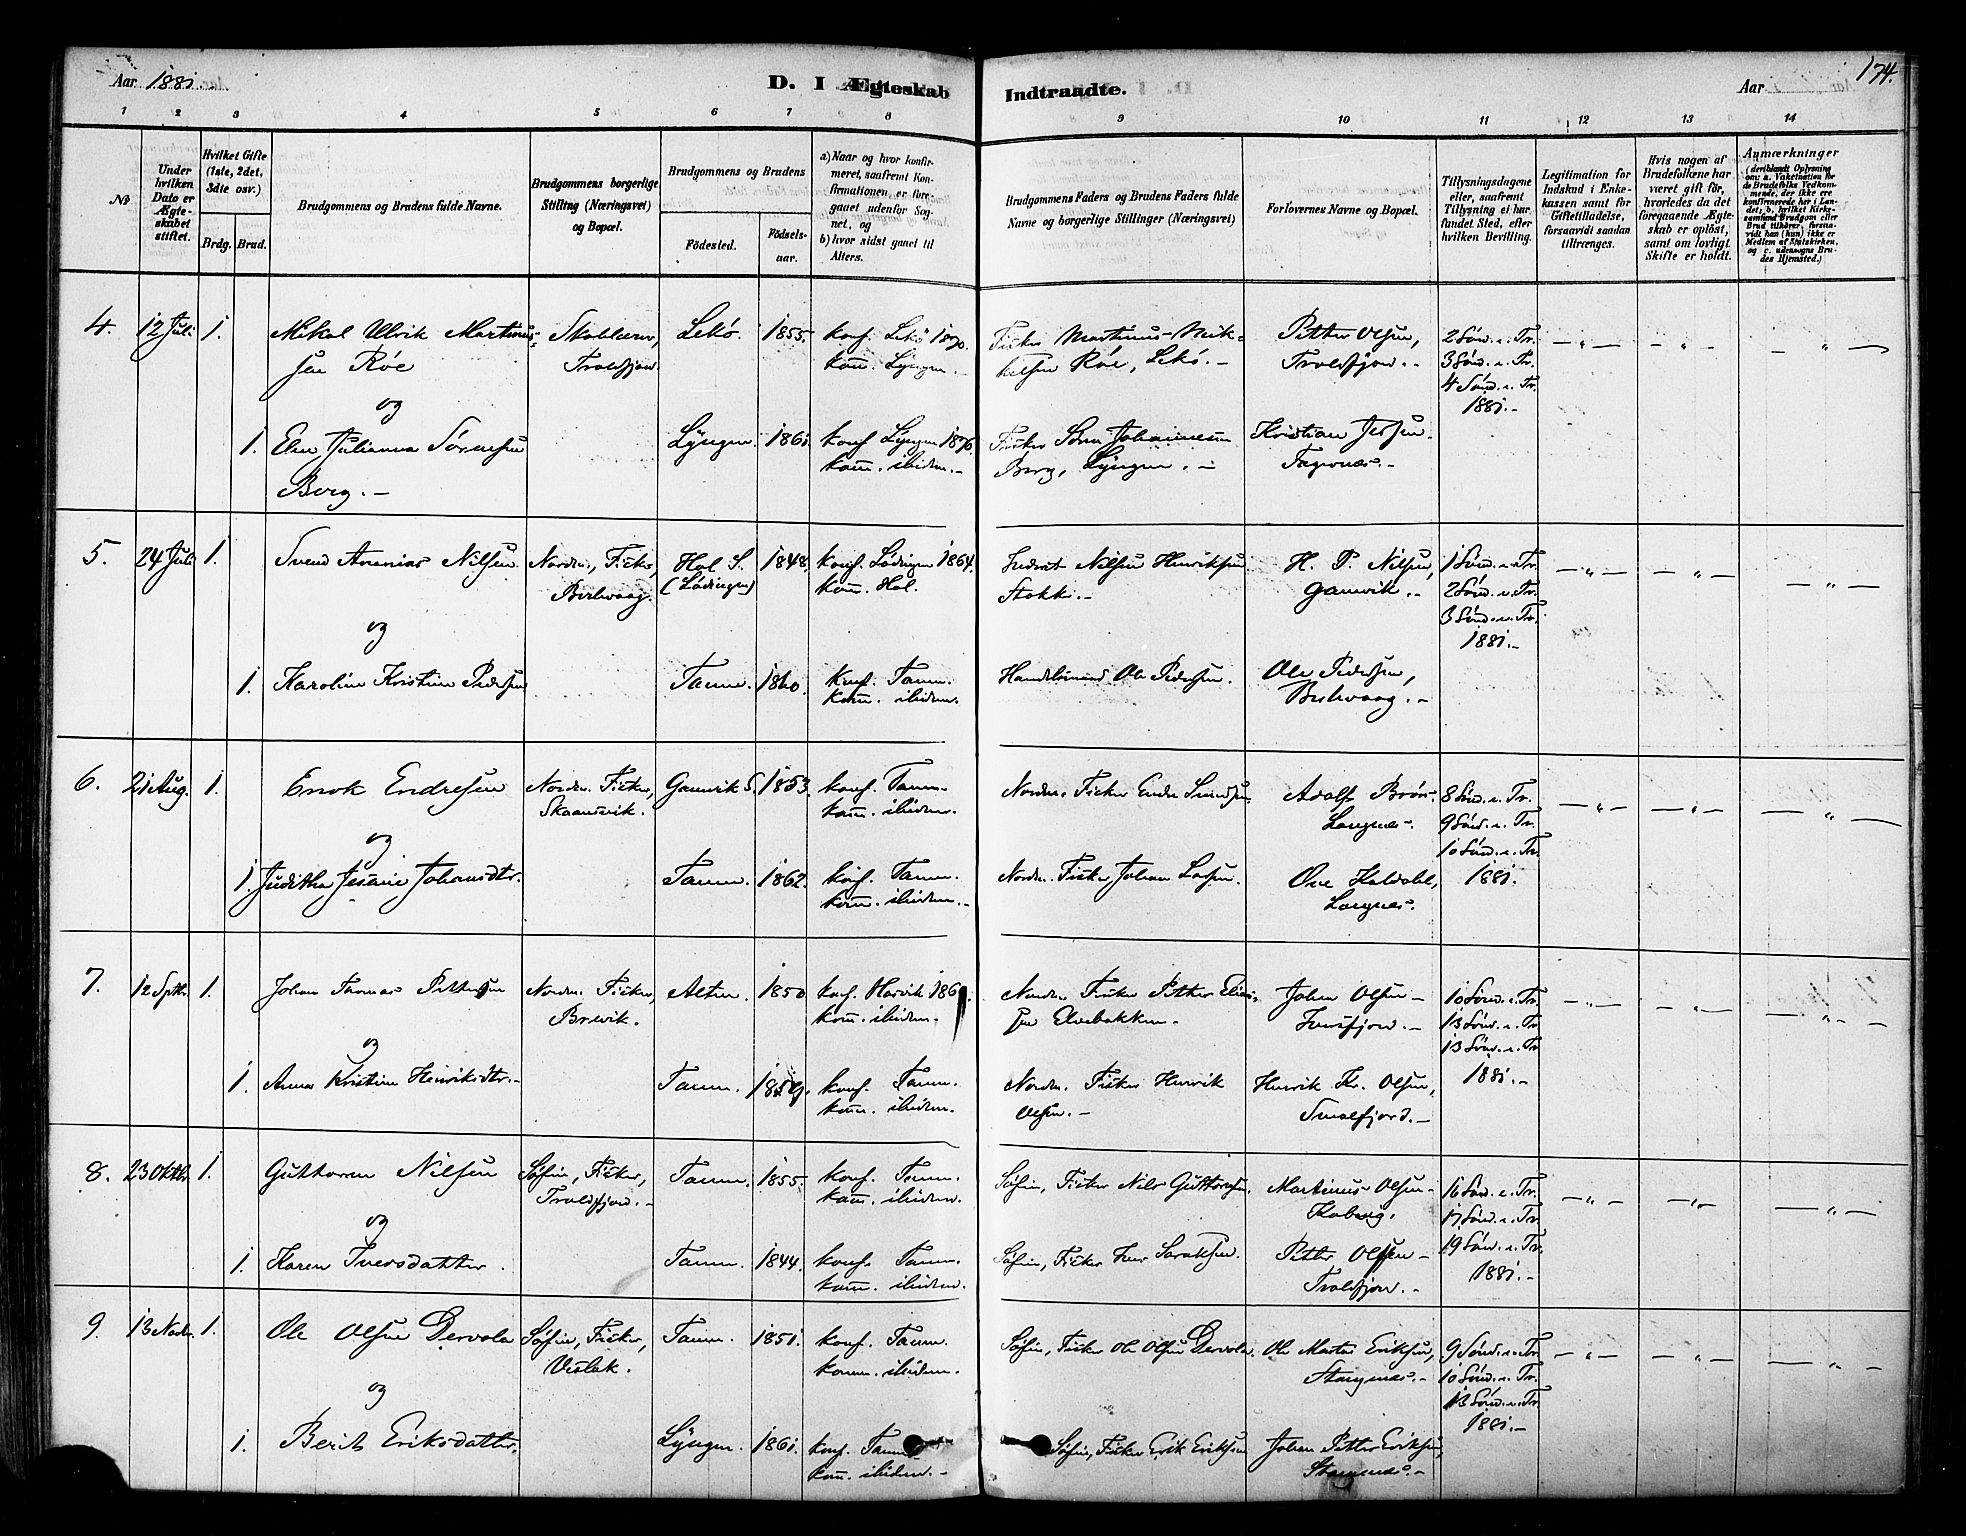 Aar 1881.
D. I Ægteskab Indtraadte.
Aar
174.
1 2 3 4 5 6 7 8 9 10 11 12 13 14
No
Under hvilken Dato er Ægteskabet stiftet.
Hvilket Gifte (1ste, 2det, 3die osv.)
Brdg. Brud.
Brudgommens og Brudens fulde Navne.
Brudgommens borgerlige Stilling (Næringsvei) og Bopæl.
Brudgommens og Brudens
Fødested.
Fødselsaar.
a) Naar og hvor konfirmeret, saafremt Konfirmationen er foregaaet udenfor Sognet, og
b) hvor sidst gaaet til Alters.
Brudgommens Faders og Brudens Faders fulde Navne og borgerlige Stillinger (Næringsvei)
Forlovernes Navne og Bopæl.
Tillysningsdagene eller, saafremt Tillysning ei har fundet Sted, efter hvilken Bevilling.
Legitimation for Indskud i Enkekassen samt for Giftetilladelse, forsaavidt saadan tiltrænges.
Hvis nogen af Brudefolkene har været gift før, hvorledes da det foregaaende Ægteskab er opløst, samt om lovligt Skifte er holdt.
Anmærkninger
(deriblandt Oplysning om: a. Vakcination for de Brudefolks Vedkommende, der ikke ere konfirmerede her i Landet; b. hvilket Kirkesamfund Brudgom eller Brud tilhører, forsaavidt han (hun) ikke er Medlem af Statskirken, og c. udensogns Brudes Hjemsted.)
4. 12 Juli 1. Mikal Ulrik Martinus-
sen Røe
Troldfjord.
Lekø. 1855. konf. Lekø 1870.
kom. Lyngen.
Fisker Martinus Mik-
kelsen Røe, Lekø. -
Petter Olsen,
Troldfjord. -
2 Sønd. e. Tr.
3 Sønd. e. Tr.
4 Sønd. e. Tr.
1881. -
og
1. Elen Julianna Sørensen
Berg. -
Lyngen. 1861. konf. Lyngen 1876.
kom. ibidem. -
Fisker Søren Johannesen
Berg, Lyngen. -
Kristian Jessen
Fagernæs. -
5. 24 Juli 1. Svend Ananias Nilsen
Nordm., Fisker,
Berlevaag.
Hol S.
(Lødingen)
1848. konf. Lødingen 1864.
kom. Hol.
Inderst Nilsen Henriksen
Stokke. -
H. P. Nilsen,
Gamvik. -
1 Sønd. e. Tr.
2 Sønd. e. Tr.
3 Sønd. e. Tr.
1881. -
og
1. Karoline Kristine Pedersen
Tanen. 1860. konf. Tanen.
kom. ibidem.
Handelsmand Ole Pedersen.
Ole Pedersen,
Berlevaag. -
6. 21 Aug. 1. Enok Endresen
Nordm. Fisker,
Skaansvik.
Gamvik S. 1853. konf. Tanen.
kom. ibidem.
Nordm. Fisker Endre Simonsen
Adolf Brøn.
Langnes.
8 Sønd. e. Tr.
9 Sønd. e. Tr.
10 Sønd. e. Tr.
1881.
og
1. Juditha Jesine Johansdtr.
Tanen. 1862. konf. Tanen.
kom. ibidem. -
Nordm. Fisker Johan Larsen.
Ove Haldahl,
Langnes.
7. 12 Sptbr. 1. Johan Tomas Pettersen
Nordm. Fisker,
Brevik.
Alten. 1850.
kom. ibidem. -
Nordm. Fisker Petter Elias-
sen Elvebakken. -
Johan Olsen -
Iversfjord. -
10 Sønd. e. Tr.
13 Sønd. e. Tr.
13 Sønd. e. Tr.
1881. -
og
1. Anna Kristine Henriksdtr. -
Tanen. 1859. konf. Tanen.
kom. ibidem.
Nordm. Fisker Henrik
Olsen. -
Henrik Kr. Olsen,
Smalfjord. -
8. 23 Oktbr. 1. Guttorm Nilsen
Søfin, Fisker,
Troldfjord. -
Tanen. 1855. konf. Tanen.
kom. ibidem.
Søfin, Fisker Nils Guttormsen.
Martinus Olsen -
16 Sønd. e. Tr.
17 Sønd. e. Tr.
19 Sønd. e. Tr.
1881. -
og
1. Karen Iversdatter.
Tanen. 1844. konf. Tanen.
kom. ibidem.
Søfin, Fisker Iver Saraksen.
Petter Olsen -
Troldfjord. -
9. 13 Novbr. 1. Ole Olsen Dervola
Søfin, Fisker,
Vestak.
Tanen. 1851. konf. Tanen.
komm. ibidem.
Søfin, Fisker Ole Olsen Dervola.
Ole Martin Eriksen,
Stangnes. -
9 Sønd. e. Tr.
10 Sønd. e. Tr.
13 Sønd. e. Tr.
1881. -
og
1. Berit Eriksdatter.
Lyngen. 1861. konf. Tanen
kom. ibidem. -
Søfin, Fisker Erik Eriksen
Johan Petter Eriksen,